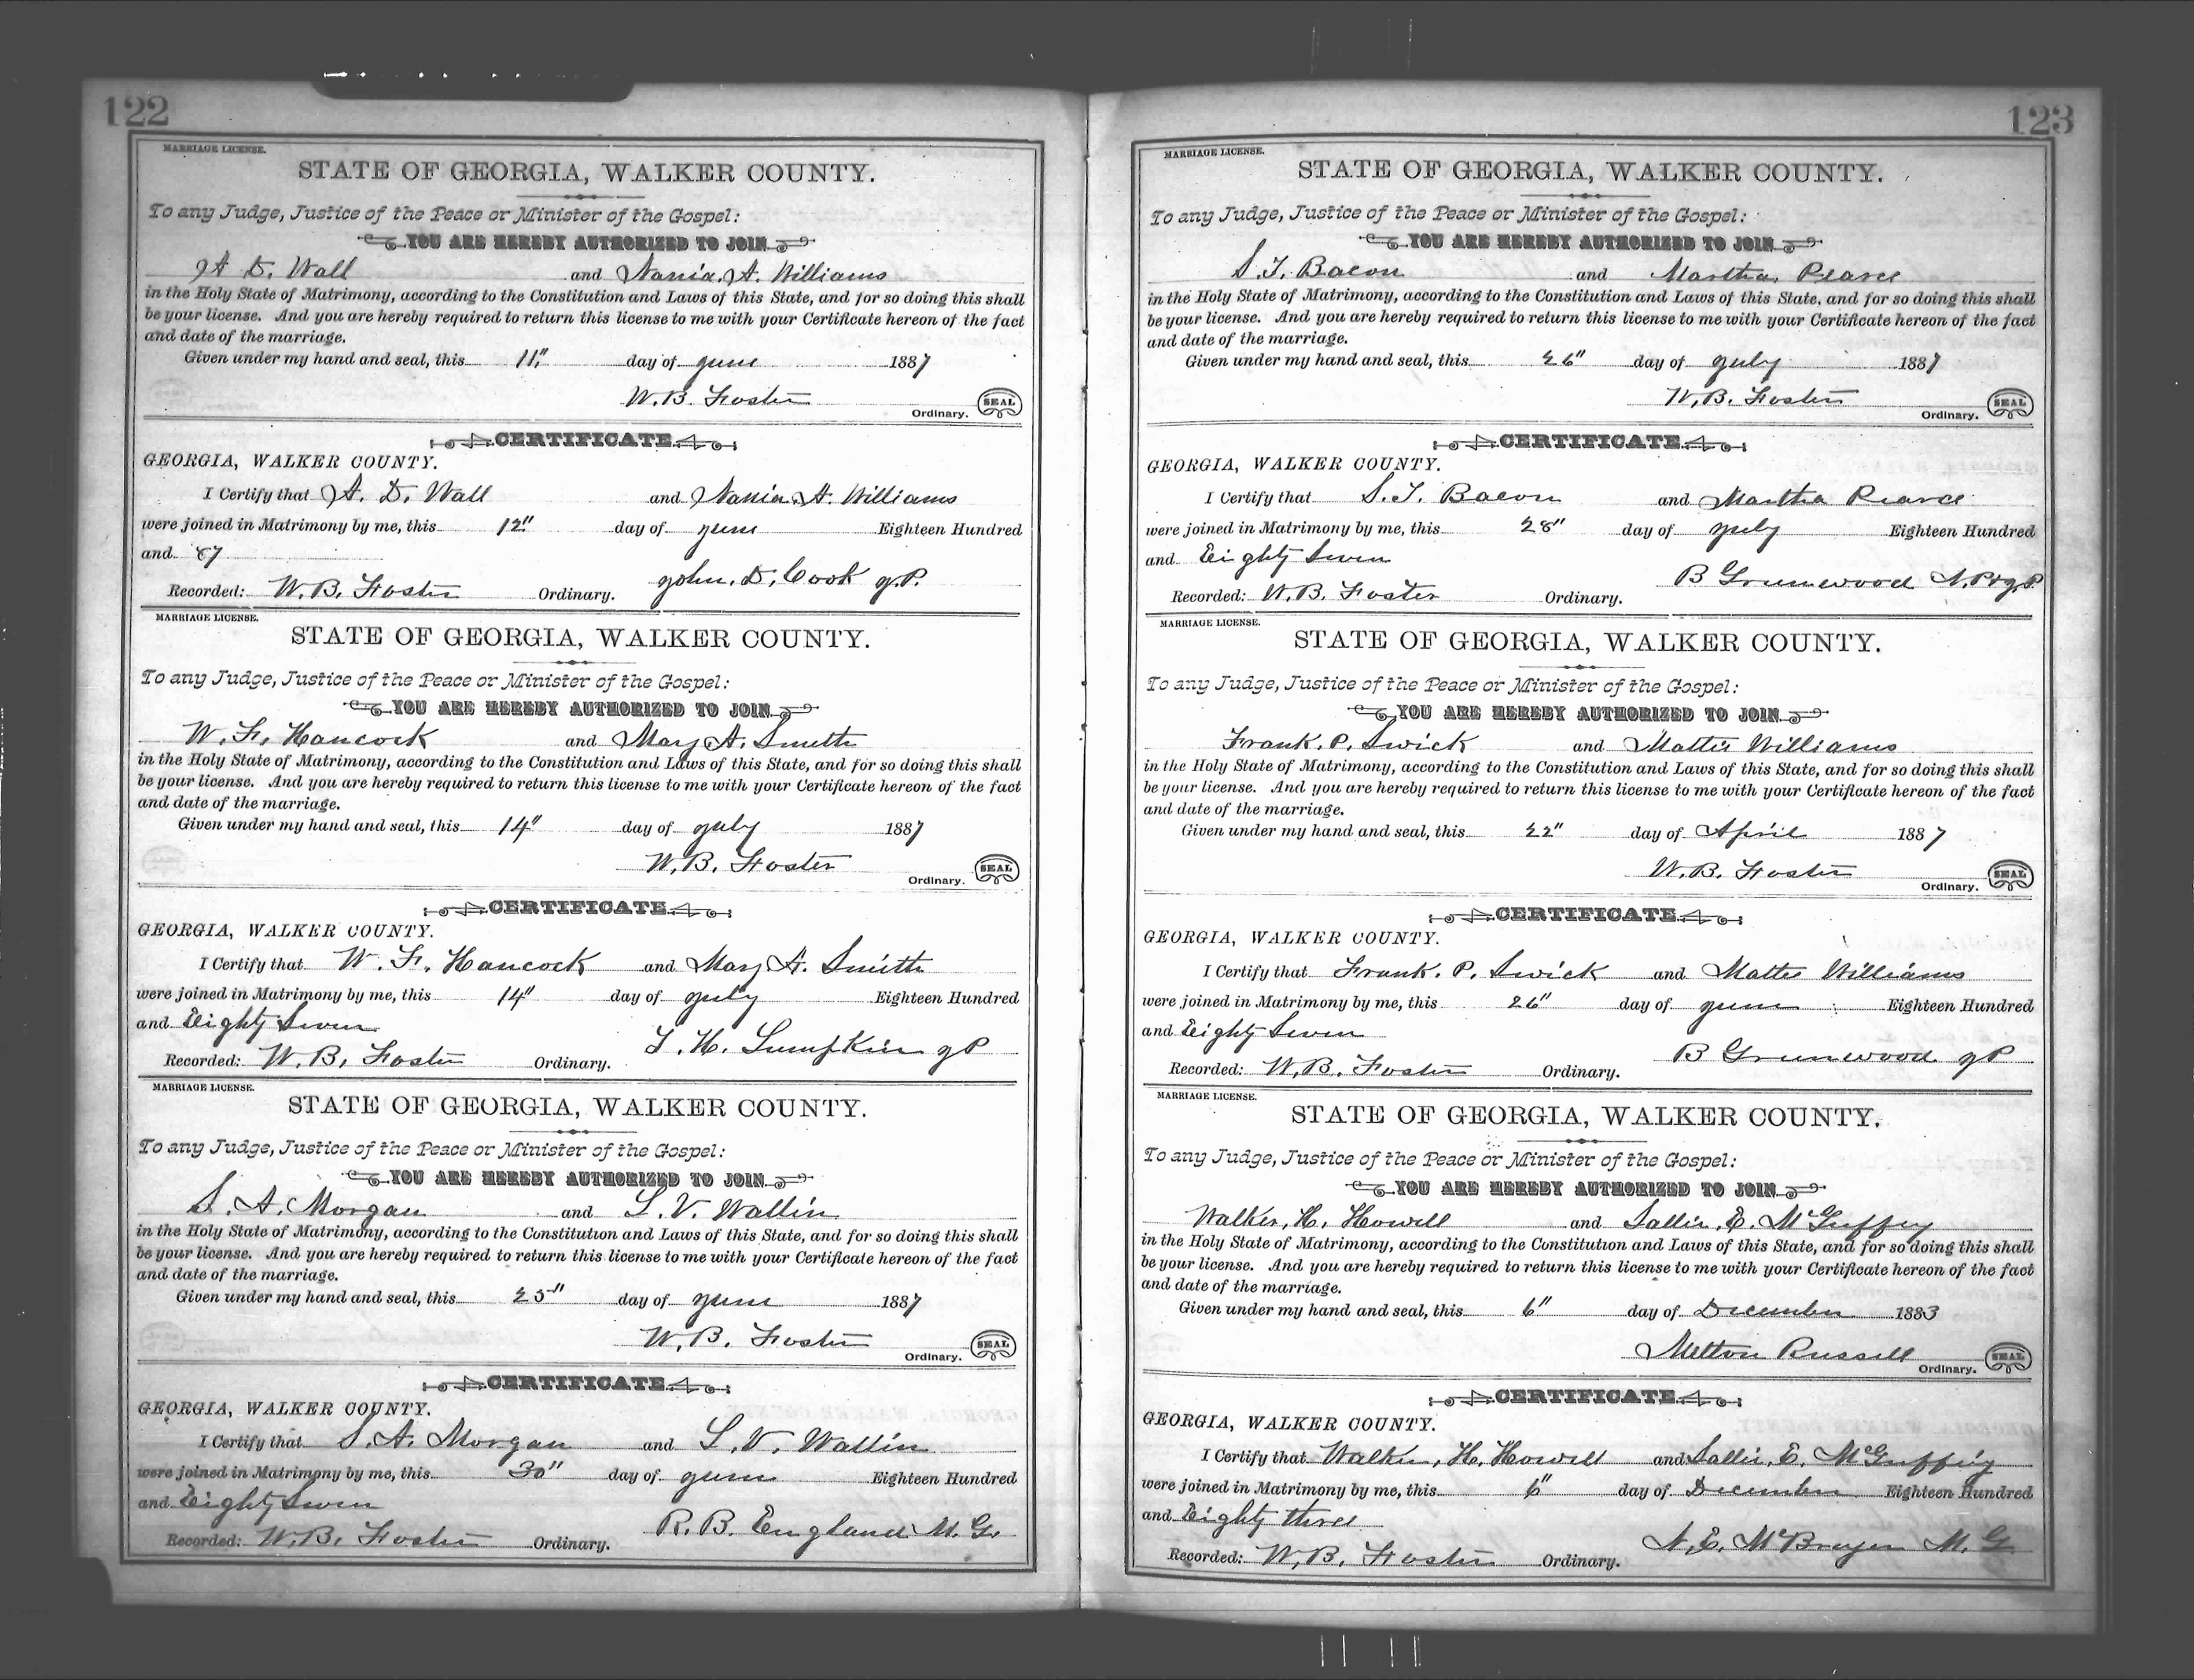 122
MARRIAGE LICENSE.
STATE OF GEORGIA, WALKER COUNTY.
To any Judge, Justice of the Peace or Minister of the Gospel:
YOU ARE HEREBY AUTHORIZED TO JOIN
A. D. Wall and Nania. A. Williams
in the Holy State of Matrimony, according to the Constitution and Laws of this State, and for so doing this shall
be your license. And you are hereby required to return this license to me with your Certificate hereon of the fact
and date of the marriage.
Given under my hand and seal, this 11" day of June 1887
W. B. Foster
Ordinary. SEAL
CERTIFICATE
GEORGIA, WALKER COUNTY.
I Certify that A. D. Wall and Nania. A. Williams
were joined in Matrimony by me, this 12" day of June Eighteen Hundred
and 87
John. D. Cook J.P.
Recorded: W. B. Foster Ordinary.
MARRIAGE LICENSE.
STATE OF GEORGIA, WALKER COUNTY.
To any Judge, Justice of the Peace or Minister of the Gospel:
YOU ARE HEREBY AUTHORIZED TO JOIN
W. F. Hancock and Mary A. Smith
in the Holy State of Matrimony, according to the Constitution and Laws of this State, and for so doing this shall
be your license. And you are hereby required to return this license to me with your Certificate hereon of the fact
and date of the marriage.
Given under my hand and seal, this 14" day of July 1887
W. B. Foster
Ordinary. SEAL
CERTIFICATE
GEORGIA, WALKER COUNTY.
I Certify that W. F. Hancock and Mary A. Smith
were joined in Matrimony by me, this 14" day of July Eighteen Hundred
and Eighty Seven
T. H. Lumpkin JP
Recorded: W. B. Foster Ordinary.
MARRIAGE LICENSE.
STATE OF GEORGIA, WALKER COUNTY.
To any Judge, Justice of the Peace or Minister of the Gospel:
YOU ARE HEREBY AUTHORIZED TO JOIN
S. A. Morgan and L. V. Wallin
in the Holy State of Matrimony, according to the Constitution and Laws of this State, and for so doing this shall
be your license. And you are hereby required to return this license to me with your Certificate hereon of the fact
and date of the marriage.
Given under my hand and seal, this 25" day of June 1887
W. B. Foster
Ordinary. SEAL
CERTIFICATE
GEORGIA, WALKER COUNTY.
I Certify that S. A. Morgan and L. V. Wallin
were joined in Matrimony by me, this 30" day of June Eighteen Hundred
and Eighty Seven
R. B. England M. G.
Recorded: W. B. Foster Ordinary.
123
MARRIAGE LICENSE.
STATE OF GEORGIA, WALKER COUNTY.
To any Judge, Justice of the Peace or Minister of the Gospel:
YOU ARE HEREBY AUTHORIZED TO JOIN
S. T. Bacon and Martha, Pearce
in the Holy State of Matrimony, according to the Constitution and Laws of this State, and for so doing this shall
be your license. And you are hereby required to return this license to me with your Certificate hereon of the fact
and date of the marriage.
Given under my hand and seal, this 26" day of July 1887
W. B. Foster
Ordinary. SEAL
CERTIFICATE
GEORGIA, WALKER COUNTY.
I Certify that S. T. Bacon and Martha Pearce
were joined in Matrimony by me, this 28" day of July Eighteen Hundred
and Eighty Seven
B Greenwood N.P.&J.P.
Recorded: W. B. Foster Ordinary.
MARRIAGE LICENSE.
STATE OF GEORGIA, WALKER COUNTY.
To any Judge, Justice of the Peace or Minister of the Gospel:
YOU ARE HEREBY AUTHORIZED TO JOIN
Frank. P. Swick and Mattie Williams
in the Holy State of Matrimony, according to the Constitution and Laws of this State, and for so doing this shall
be your license. And you are hereby required to return this license to me with your Certificate hereon of the fact
and date of the marriage.
Given under my hand and seal, this 22" day of April 1887
W. B. Foster
Ordinary. SEAL
CERTIFICATE
GEORGIA, WALKER COUNTY.
I Certify that Frank. P. Swick and Mattie Williams
were joined in Matrimony by me, this 26" day of June Eighteen Hundred
and Eighty Seven
B Greenwood JP
Recorded: W. B. Foster Ordinary.
MARRIAGE LICENSE.
STATE OF GEORGIA, WALKER COUNTY.
To any Judge, Justice of the Peace or Minister of the Gospel:
YOU ARE HEREBY AUTHORIZED TO JOIN
Walker, H. Howell and Sallie, E. McGuffey
in the Holy State of Matrimony, according to the Constitution and Laws of this State, and for so doing this shall
be your license. And you are hereby required to return this license to me with your Certificate hereon of the fact
and date of the marriage.
Given under my hand and seal, this 6" day of December 1883
Milton Russell
Ordinary. SEAL
CERTIFICATE
GEORGIA, WALKER COUNTY.
I Certify that Walker, H. Howell and Sallie. E. McGuffey
were joined in Matrimony by me, this 6" day of December Eighteen Hundred
and Eighty three
A. E. McBrayer M. G
Recorded: W. B. Foster Ordinary.